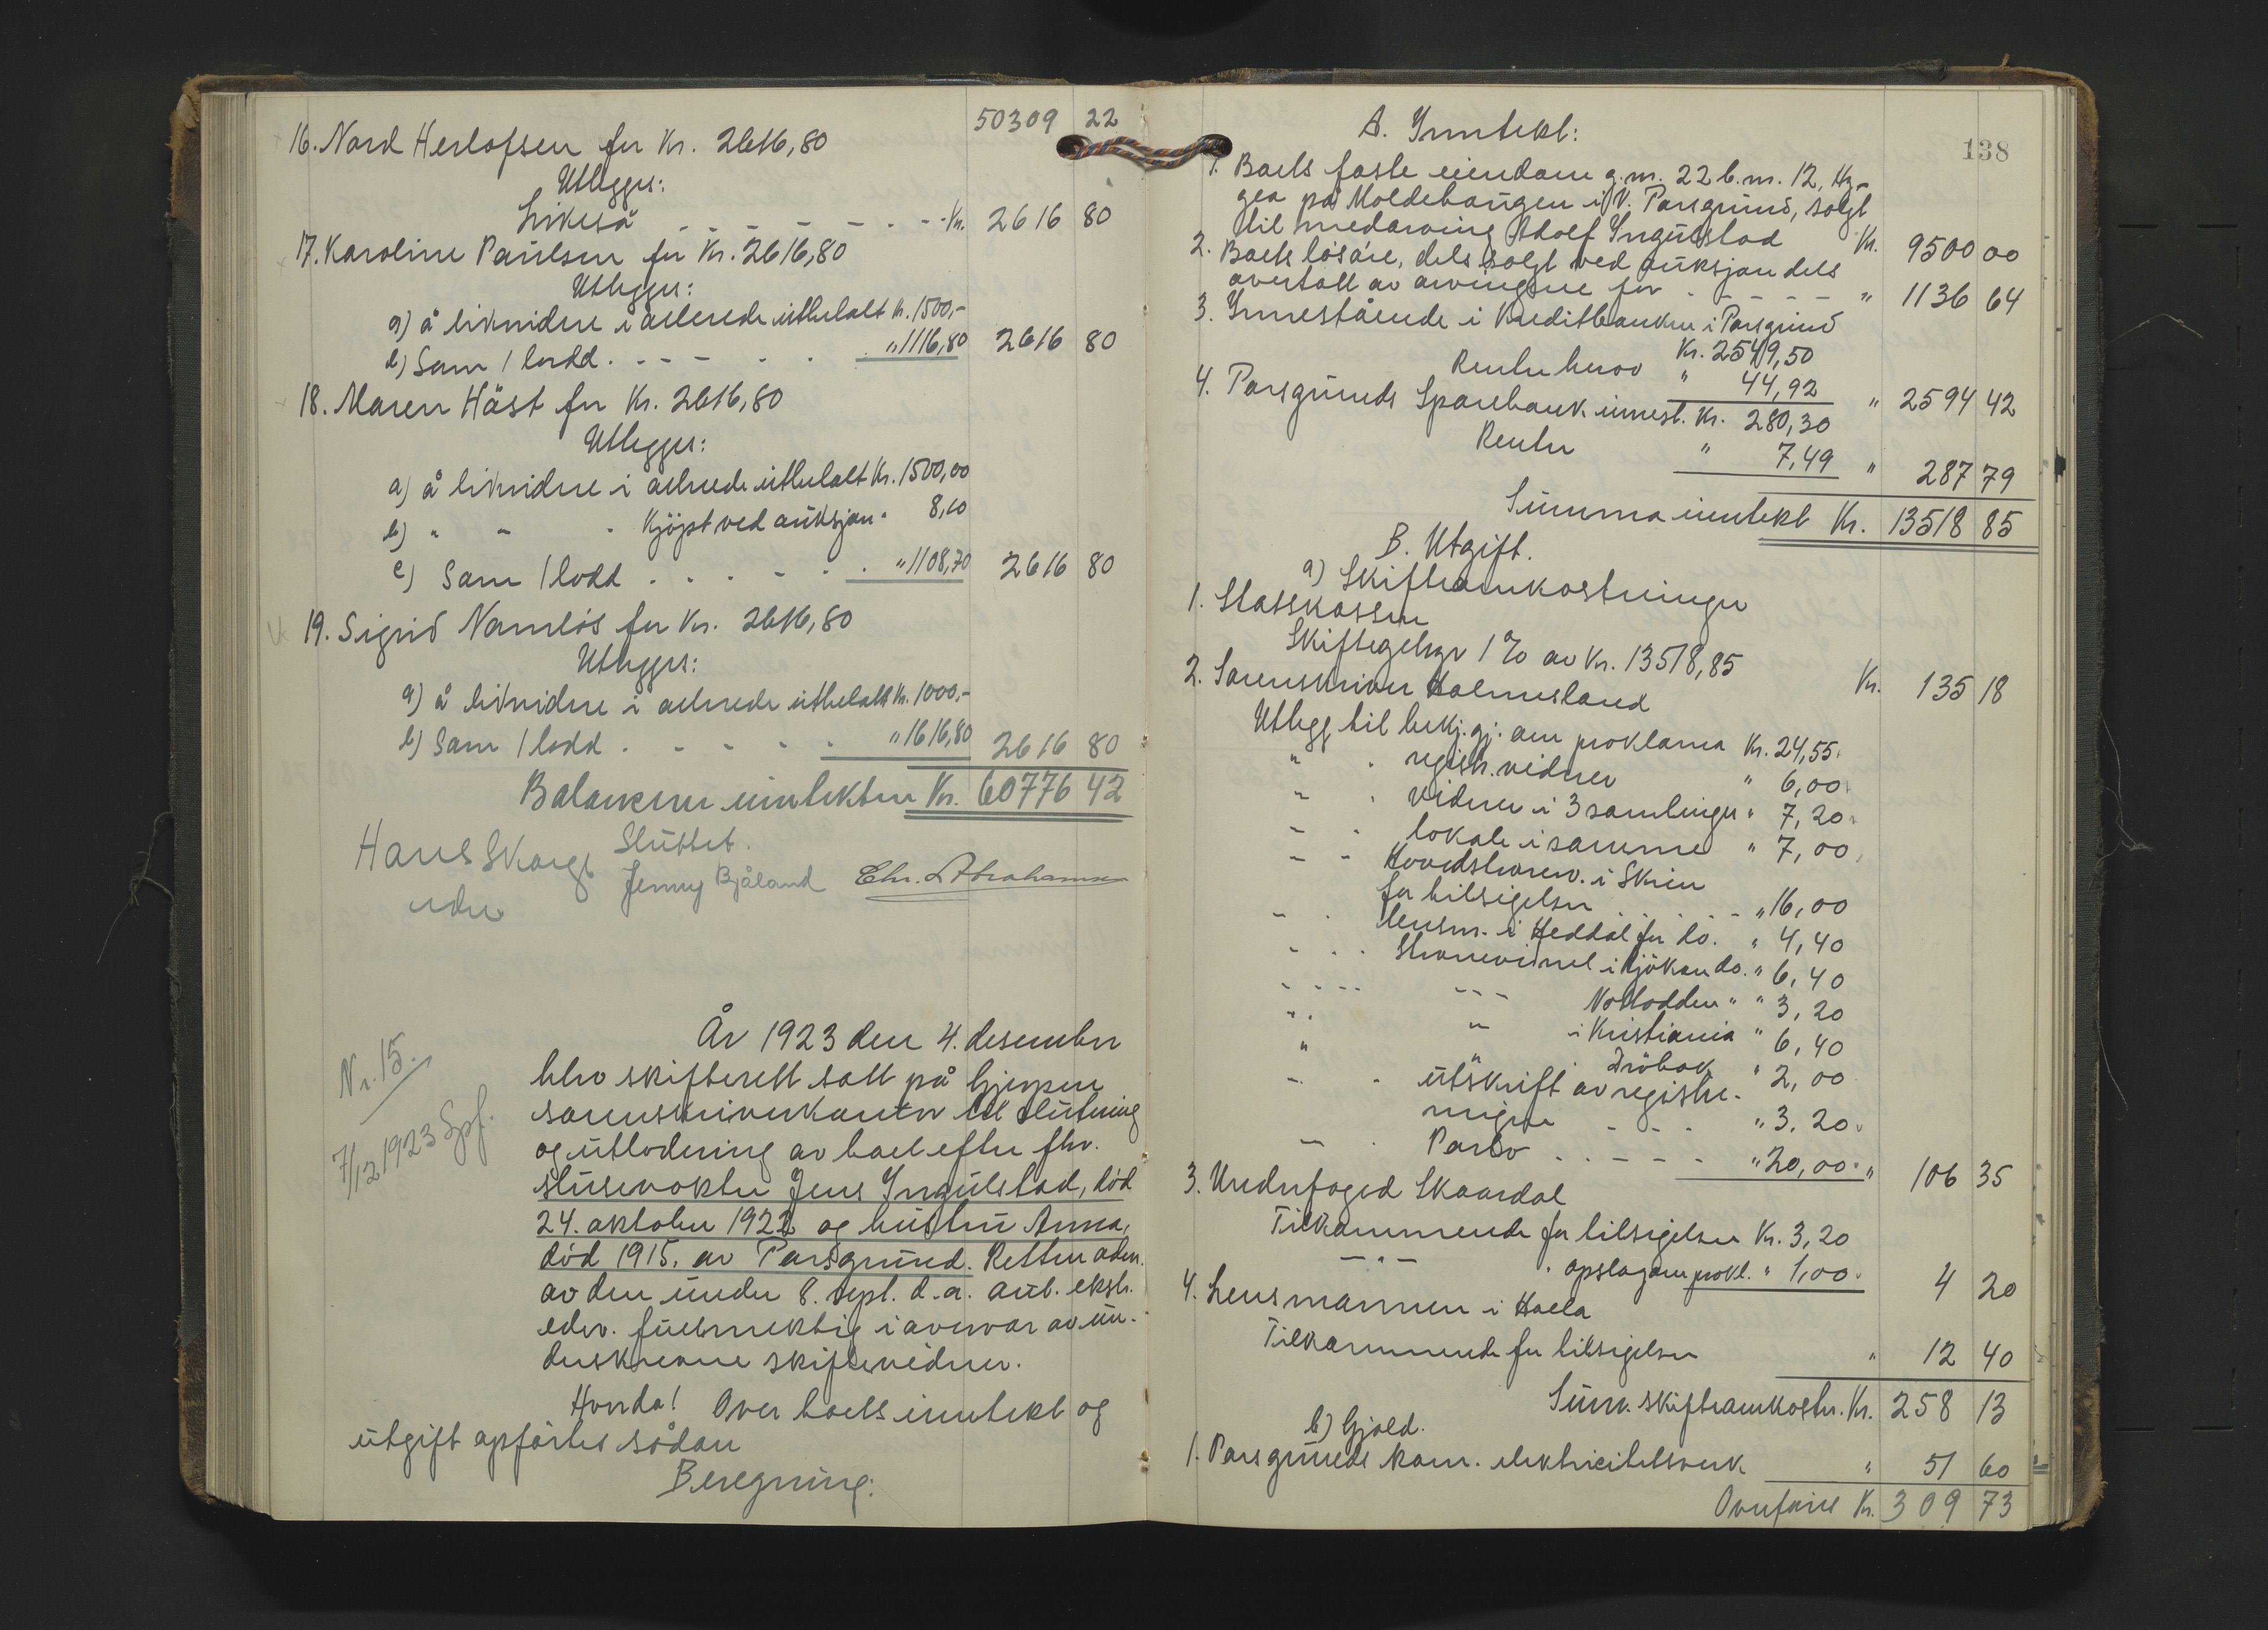 50309 22
16. Nord Herlofsen for Kr. 2616,80
Utlegges:
Likeså - - - - - - Kr. 2616 80
17. Karoline Paulsen for Kr. 2616,80
Utlegges:
a) å likvidere i allerede utbetalt Kr. 1500,-
b) Som 1 lodd . - - - . . " 1116,80 2616 80
18. Maren Häst for Kr. 2616,80
Utlegges:
a) å likvidere i allerede utbetalt Kr. 1500,00
b) " - " Kjöpt ved auksjon " 8,10
c) Som 1 lodd . . . - - . . " 1108,70 2616 80
19. Sigrid Namlös for Kr. 2616,80
Utlegges:
a) å likvidere i allerede utbetalt Kr. 1000,-
b) Som 1 lodd . - - - . . " 1616,80 2616 80
Balancerer inntekten Kr. 60776 42
Sluttet.
Hans Skarge Jenny Bjåland Chr. Abrahamsen
Nr. 15.
7/12 1923 Spf.
År 1923 den 4. desember
blev skifterett satt på Gjerpen
sorenskriverkontor til slutning
og utlodning av boet efter fhv.
slusevokter Jens Ingulstad, död
24. oktober 1922 og hustru Anna,
död 1915, av Porsgrund. Retten adm.
av den under 8. sept. d.a. aut. ekstr.
edsv. fullmektig i overvær av un-
derskrevne skiftevidner.
Hvorda! Over boets inntekt og
utgift opförtes sådan
Beregning:
138
A. Inntekt:
1. Boets faste eiendom g.nr. 22 b.nr. 12, Hy-
gea på Moldehaugen i V. Porsgrund, solgt
til medarving Adolf Ingulstad Kr. 9500 00
2. Boets lösöre, dels solgt ved auksjon dels
overtatt av arvingene for . - - - - - " 1136 64
3. Innestående i Kreditbanken i Porsgrund
Kr. 2549,50
Renter herav " 44,92 " 2594 42
4. Porsgrunds Sparebank innest. Kr. 280,30
Renter " 7,49 " 287 79
Summa inntekt Kr. 13518 85
B. Utgift.
a) Skifteomkostninger
1. Statskassen
Skiftegebyr 1 % av Kr. 13518,85 Kr. 135 18
2. Sorenskriver Holmesland
Utlegg til bekj.gj. om proklama Kr. 24,55
" . registr.vidner " 6,00
- . vidner i 3 samlinger " 7,20
- . lokale i samme " 7,00
- - Hovedstevnev. i Skien
for tilsigelser . . . . - " 16,00
- . lensm. i Heddal for do. " 4,40
- . . Stevnevidnet i Rjökan do. " 6,40
- - - - - - - Notodden " " 3,20
" . " i Kristiania " 6,40
" " Dröbak " 2,00
- . utskrift av registre-
ringen - - . " 3,20
- . Porto . . - - - . " 20,00 " 106 35
3. Underfoged Skaardal
Tilkommende for tilsigelser Kr. 3,20
- " - . opslag om prokl. " 1,00 4 20
4. Lensmannen i Holla
Tilkommende for tilsigelser " 12 40
Sum skifteomkostn. Kr. 258 13
b) Gjeld.
1. Porsgrunds kom. elektricitetsverk " 51 60
Overföres Kr. 309 73